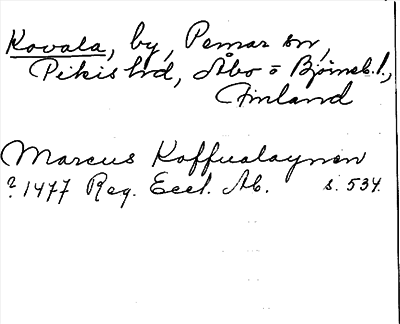 Kovala, by, Pemar sn,
Pikis hrd, Åbo o Björneb. l.,
Finland
Marcus Koffualaynen
? 1477 Reg. Eccl. Ab. s. 534.